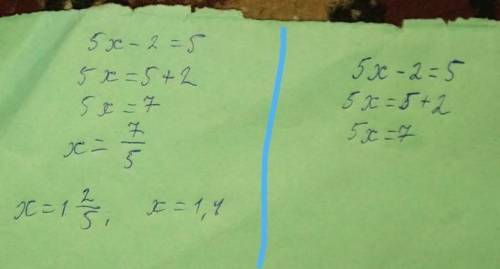 5x - 2 = 5
5x = 5 + 2
5x = 7
x = 7/5
x = 1 2/5, x = 1,4
5x - 2 = 5
5x = 5 + 2
5x = 7